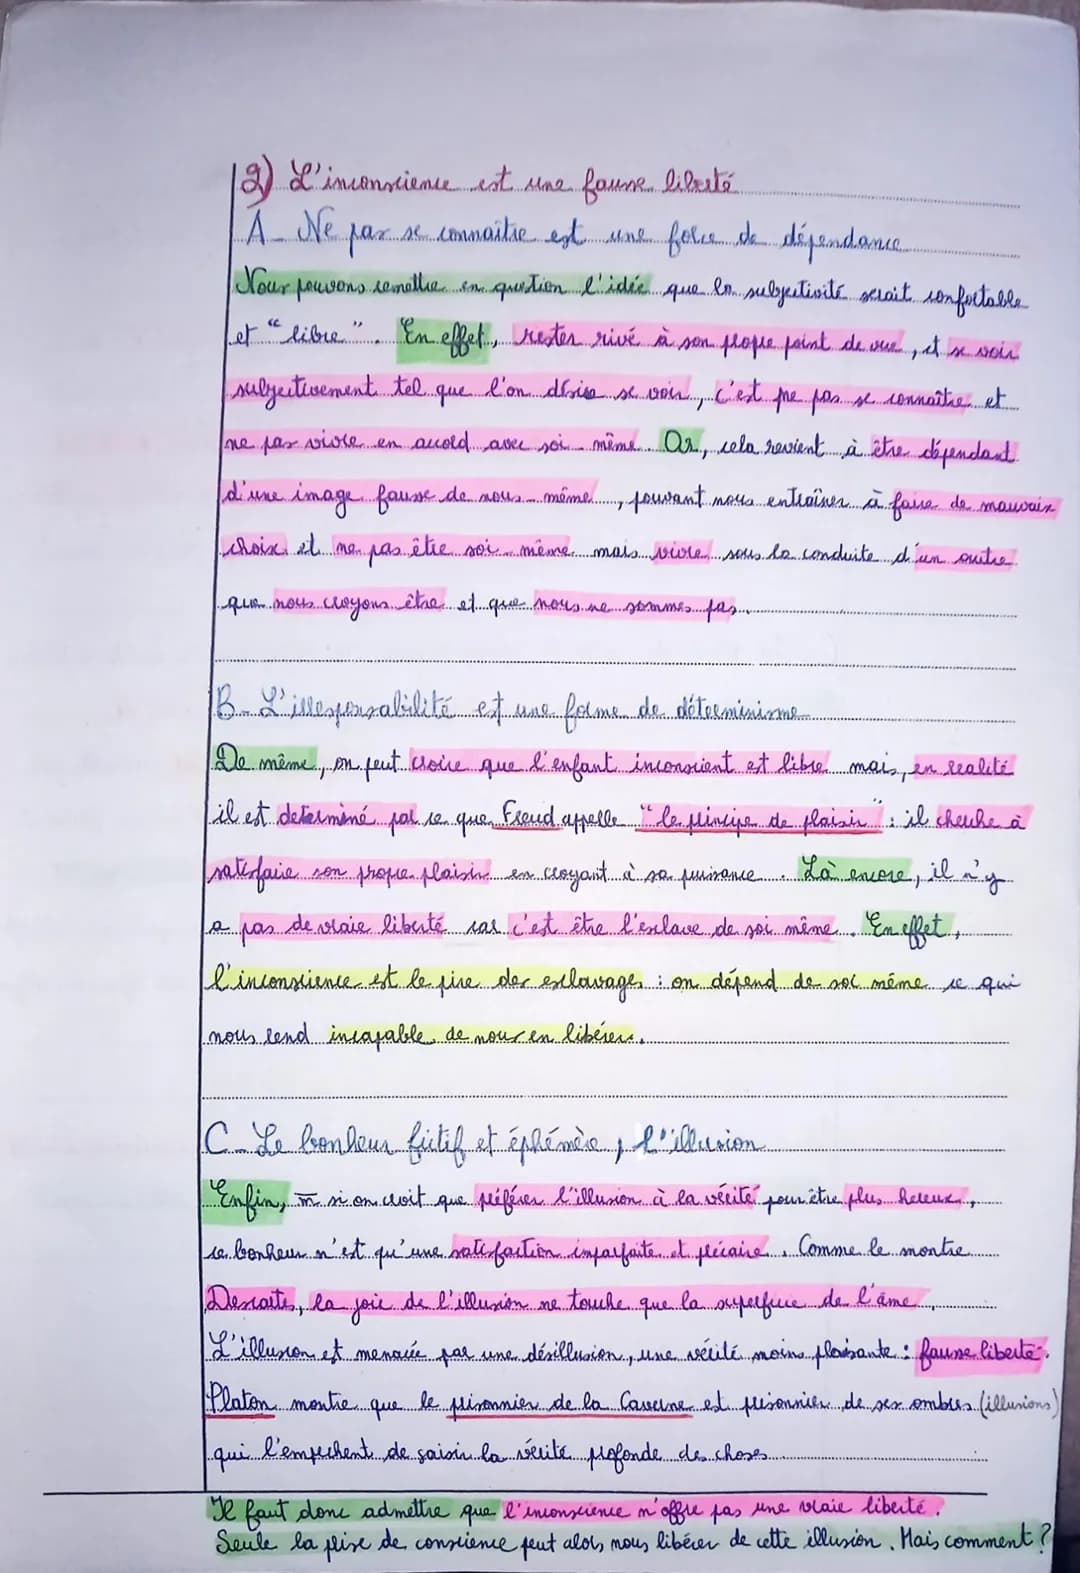 2) L'inconscience est une fausse liberté
A- Ne pas se connaître est une force de dépendance
Nous pouvons remettre en question l'idée que la subjectivité serait confortable
et "libre". En effet, rester rivé à son propre point de vue, et se voir
subjectivement tel que l'on désire se voir, c'est ne pas se connaître et
ne pas vivre en accord avec soi-même. Or, cela revient à être dépendant
d'une image fausse de nous-même, pouvant nous entraîner à faire de mauvais
choix et ne pas être soi-même mais vivre sous la conduite d'un autre
que nous croyons être et que nous ne sommes pas.
B- L'irresponsabilité est une forme de déterminisme
De même, on peut croire que l'enfant inconscient est libre mais, en réalité
il est determiné par ce que Freud appelle "le principe de plaisir" : il cherche à
satisfaire son propre plaisir en croyant à sa puissance. Là encore, il n'y
a pas de vraie liberté car c'est être l'esclave de soi même. En effet,
l'inconscience est le pire des esclavages : on dépend de soi même ce qui
nous rend incapable de nous en libérer.
C- Le bonheur fictif et éphémère, l'illusion
Enfin, m̄ si on croit que préférer l'illusion à la vérité pour être plus heureux,
ce bonheur n'est qu'une satisfaction imparfaite et précaire. Comme le montre
Descartes, la joie de l'illusion ne touche que la superficie de l'âme.
L'illusion est menacée par une désillusion, une vérité moins plaisante : fausse liberté.
Platon montre que le prisonnier de la Caverne est prisonnier de ses ombres (illusions)
qui l'empechent de saisir la vérité profonde des choses.
Il faut donc admettre que l'inconscience n'offre pas une vraie liberté.
Seule la prise de conscience peut alors nous libérer de cette illusion. Mais comment ?